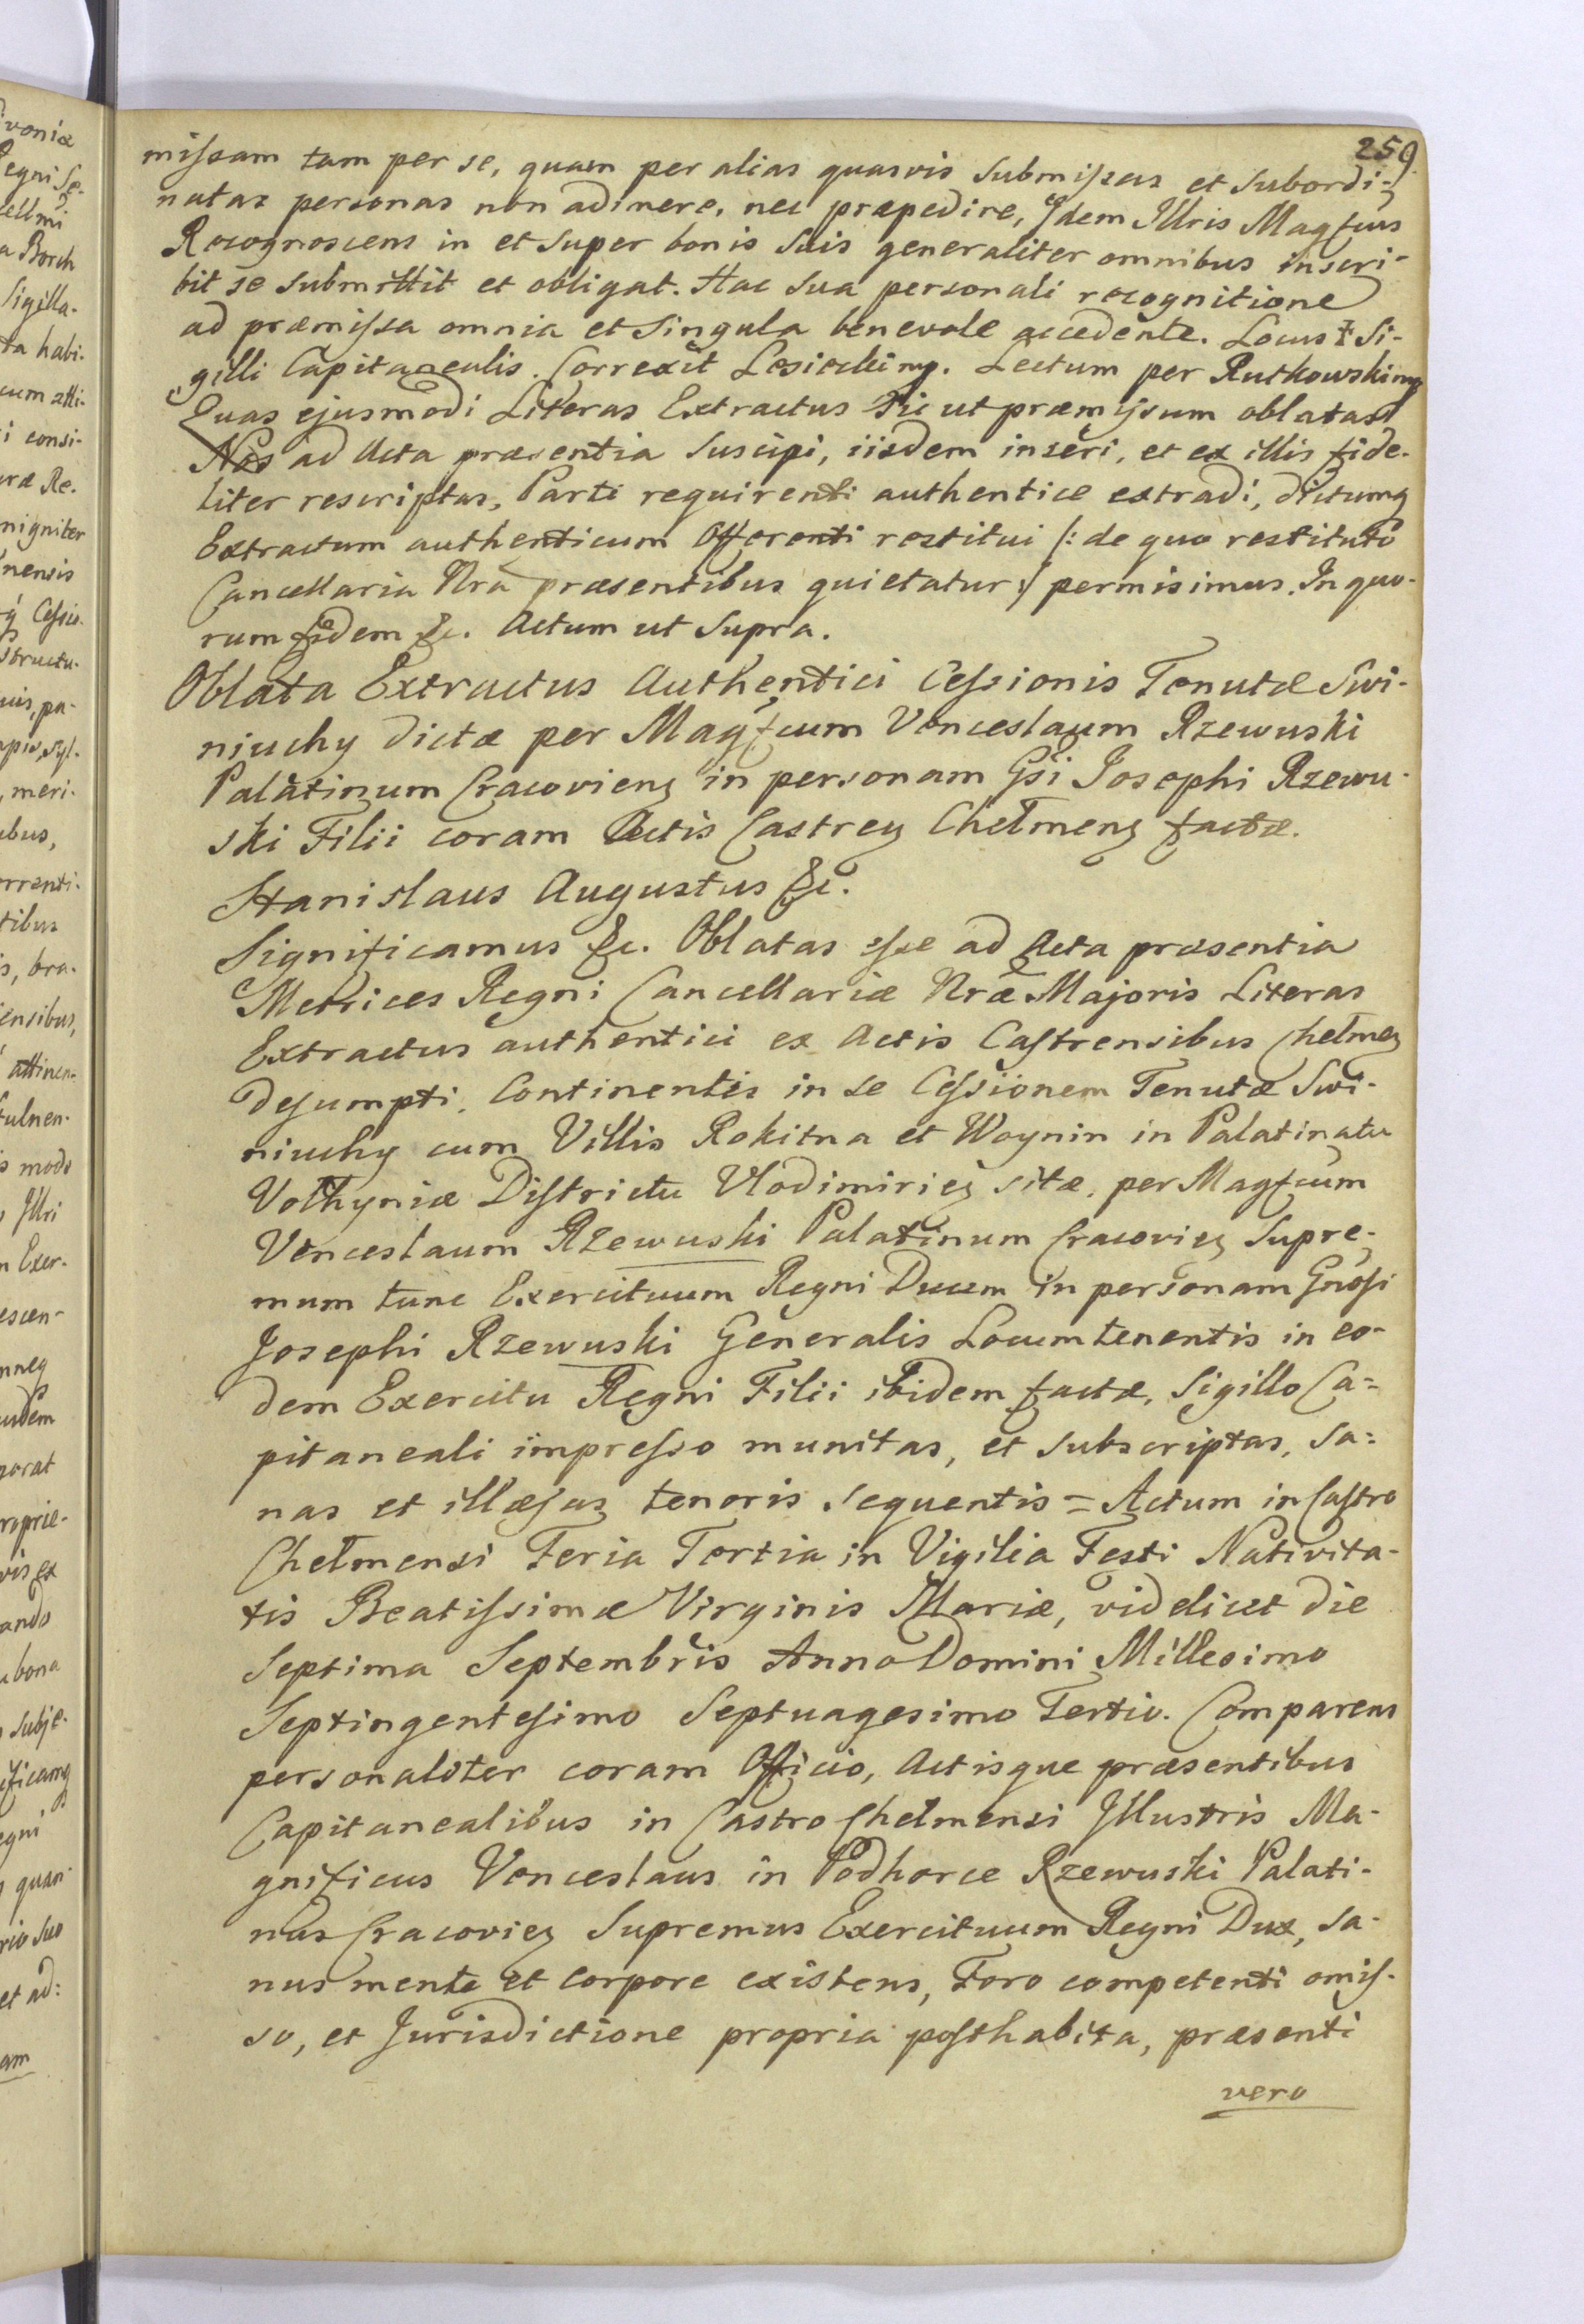 259.
missam tam per se, quam per alias quasvis submissas et subordi-
natas personas non adimere, nec præpedire, Idem Illris Magfcus
Recognoscens in et super bonis suis generaliter omnibus inscri-
bit se submittit et obligat. Hac sua personali recognitione
ad præmissa omnia et singula benevole accedente. Locus Si-
gilli Capitanealis. Correxit Lesiecki mp. Lectum per Rutkowski mp
Quas ejusmodi Literas Extractus sic ut præmissum oblatas
Nos ad Acta præsentia suscipi, iisdem inseri, et ex illis fide-
liter rescriptas, Parti requirenti authentice extradi, dictumq
Extractum authenticum Offerenti restitui /: de quo restituto
Cancellaria Nra præsentibus quietatur :/ permisimus. In quo-
rum fidem &c. Actum ut supra.
Oblata Extractus Authentici Cessionis Tenutæ Swi-
niuchy dictæ per Magfcum Venceslaum Rzewuski
Palatinum Cracovien in personam Gsi Josephi Rzewu-
ski Filii coram Actis Castren Chełmen factæ.
Stanislaus Augustus &c.
Significamus &c. Oblatas esse ad Acta præsentia
Metrices Regni Cancellariæ Nræ Majoris Literas
Extractus authentici ex Actis Castrensibus Chełmen
desumpti, Continentis in se Cessionem Tenutæ Swi-
niuchy cum Villis Rokitna et Woynin in Palatinatu
Volhyniæ Districtu Vlodimirien sitæ, per Magfcum
Venceslaum Rzewuski Palatinum Cracovien Supre-
mum tunc Exercituum Regni Ducem in personam Gnosi
Josephi Rzewuski Generalis Locumtenentis in eo-
dem Exercitu Regni Filii ibidem factæ, Sigillo Ca-
pitaneali impresso munitas, et subscriptas, sa-
nas et illæsas tenoris sequentis = Actum in Castro
Chełmensi Feria Tertia in Vigilia Festi Nativita-
tis Beatissimæ Virginis Mariæ, videlicet die
Septima Septembris Anno Domini Millesimo
Septingentesimo Septuagesimo Tertio. Comparens
personaliter coram Officio, Actisque præsentibus
Capitanealibus in Castro Chełmensi Illustris Ma-
gnificus Venceslaus in Podhorce Rzewuski Palati-
nus Cracovien Supremus Exercituum Regni Dux, sa-
nus mente et corpore existens, Foro competenti omis-
so, et Jurisdictione propria posthabita, præsenti
vero